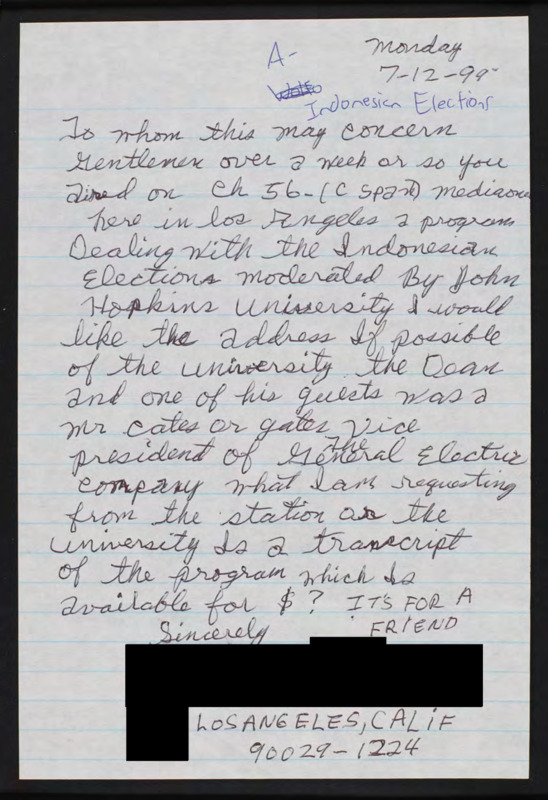 A-
Monday
7-12-99
Indonesian Elections
To whom this may concern
Gentlemen over a week or so you
aired on Ch 56-(C Span) mediaone
here in los Angeles a program
Dealing with the Indonesian
Elections moderated By John
Hopkins University I would
like the address If possible
of the university the Dean
and one of his guests was a
mr cates or gates Vice
president of The General Electric
company what I am requesting
from the station or the
university Is a transcript
of the program which Is
available for $? IT'S FOR A
Sincerely FRIEND
LOS ANGELES, CALIF
90029-1224